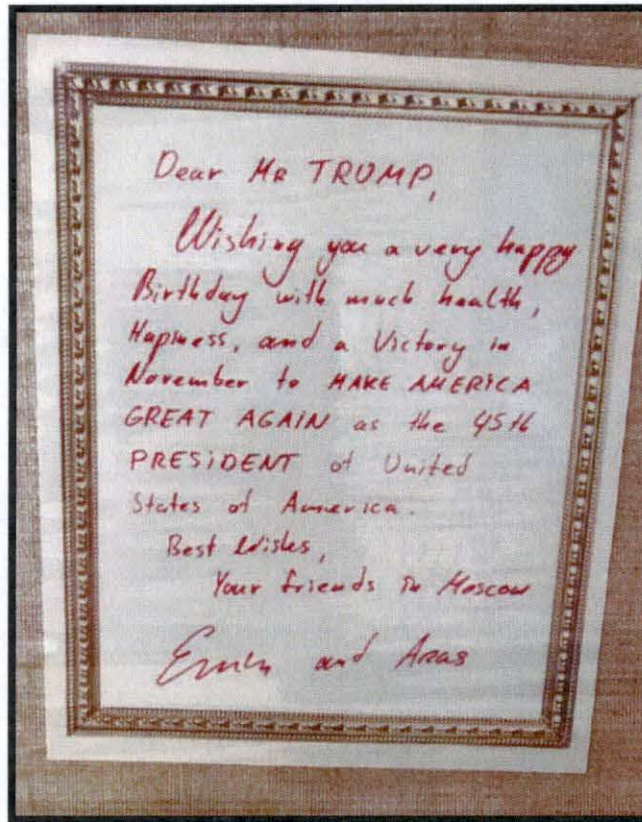 Dear MR TRUMP,
Wishing you a very happy
Birthday with much health,
Hapiness, and a Victory in
November to MAKE AMERICA
GREAT AGAIN as the 45th
PRESIDENT of United
States of America.
Best Wishes,
Your friends in Moscow
and Aras